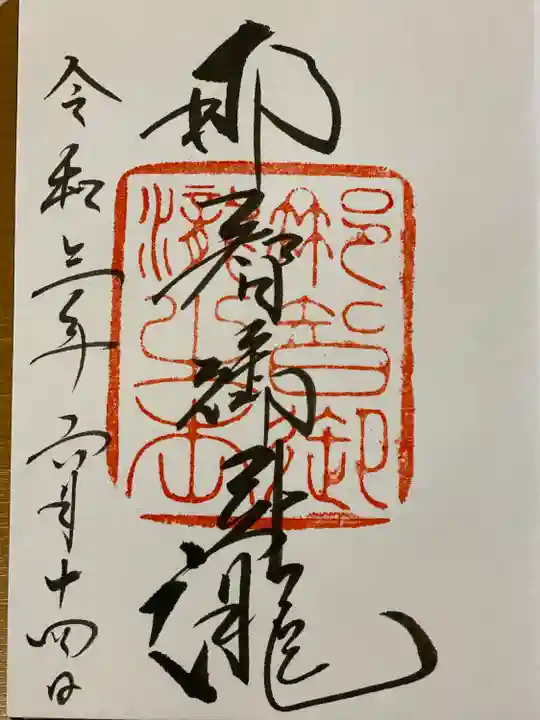 那智御瀧
令和六年六月十四日